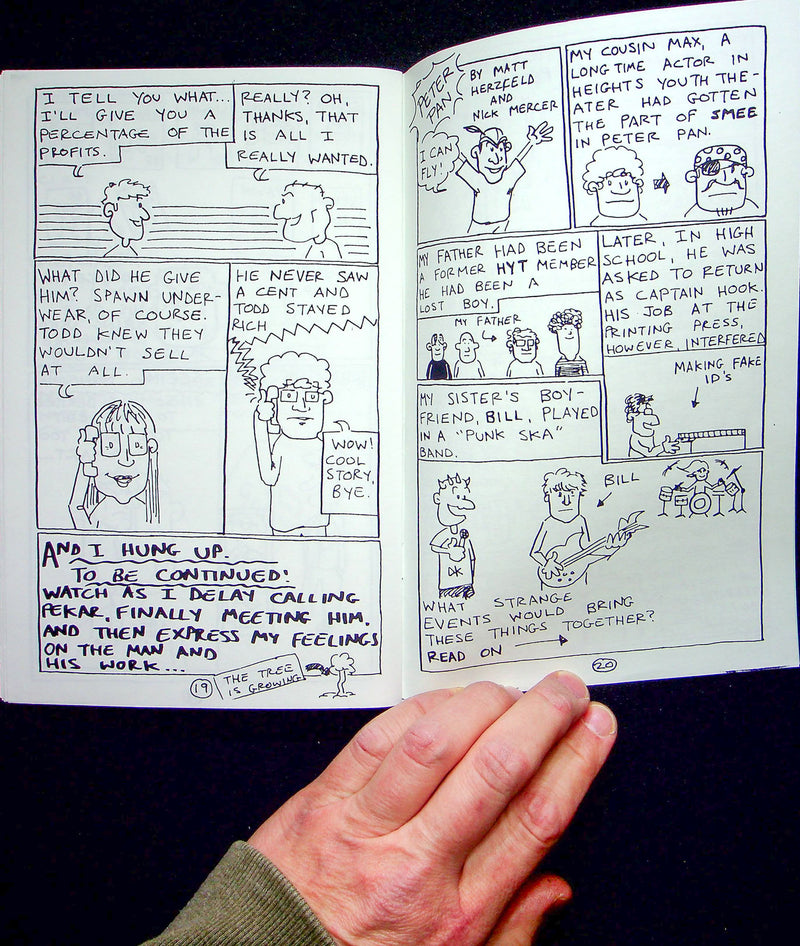 I TELL YOU WHAT...
I'LL GIVE YOU A
PERCENTAGE OF THE
PROFITS.
REALLY? OH,
THANKS, THAT
IS ALL I
REALLY WANTED.
WHAT DID HE GIVE
HIM? SPAWN UNDER-
WEAR, OF COURSE.
TODD KNEW THEY
WOULDN'T SELL
AT ALL.
HE NEVER SAW
A CENT AND
TODD STAYED
RICH
WOW!
COOL
STORY,
BYE.
AND I HUNG UP.
TO BE CONTINUED!
WATCH AS I DELAY CALLING
PEKAR, FINALLY MEETING HIM,
AND THEN EXPRESS MY FEELINGS
ON THE MAN AND
HIS WORK...
19
THE TREE
IS GROWING
PETER
PAN
BY MATT
HERZFELD
AND
NICK MERCER
I CAN
FLY!
MY COUSIN MAX, A
LONG TIME ACTOR IN
HEIGHTS YOUTH THE-
ATER HAD GOTTEN
THE PART OF SMEE
IN PETER PAN.
MY FATHER HAD BEEN
A FORMER HYT MEMBER
HE HAD BEEN A
LOST BOY.
MY FATHER
LATER, IN HIGH
SCHOOL, HE WAS
ASKED TO RETURN
AS CAPTAIN HOOK.
HIS JOB AT THE
PRINTING PRESS,
HOWEVER, INTERFERED
MAKING FAKE
ID'S
MY SISTER'S BOY-
FRIEND, BILL, PLAYED
IN A "PUNK SKA"
BAND.
BILL
DK
WHAT STRANGE
EVENTS WOULD BRING
THESE THINGS TOGETHER?
READ ON
20